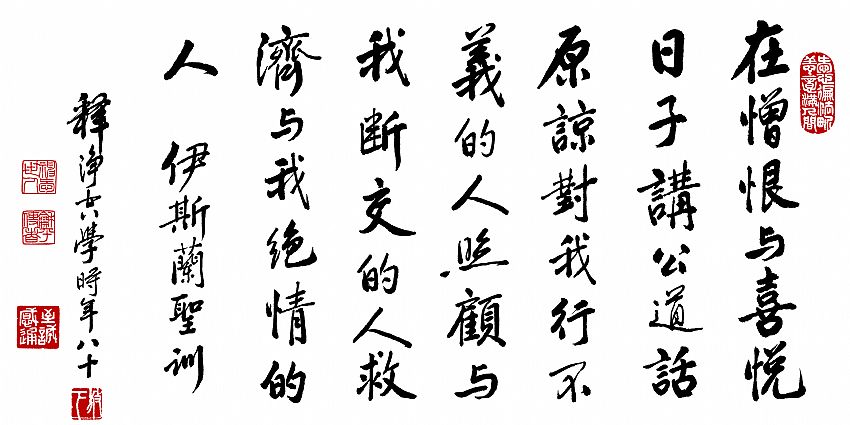 在憎恨与喜悦
日子講公道話
原諒對我行不
義的人照顧与
我断交的人救
濟与我绝情的
人 伊斯蘭聖训
釋淨空學時年八十
至誠感通